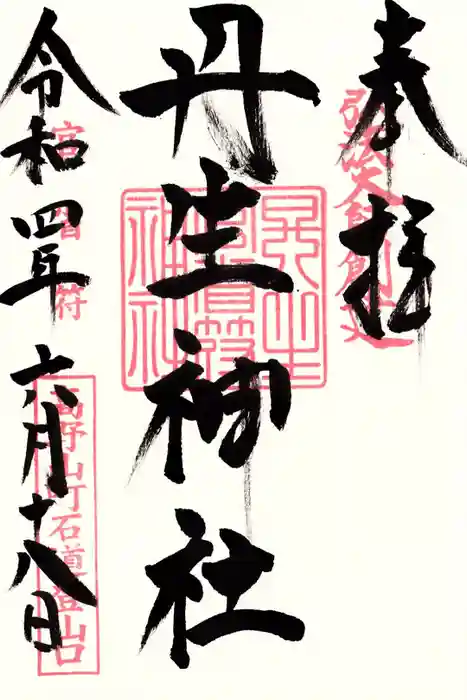 奉拝
弘法大師創建
丹生神社
丹生官省符神社
令和四年六月十八日
官省符
高野山町石道登山口